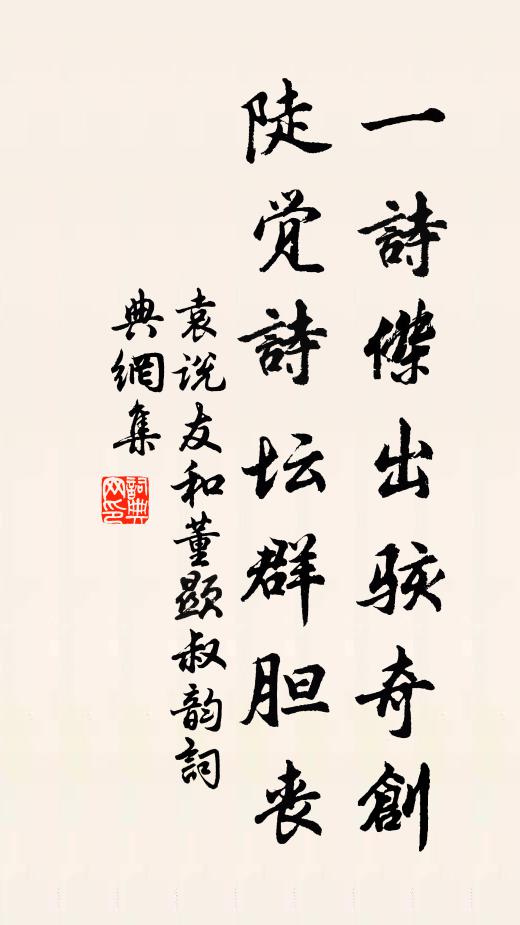 一詩傑出駭奇創
陡觉詩坛群胆丧
袁说友和董顕叔韵詞
典網集
詞典网印